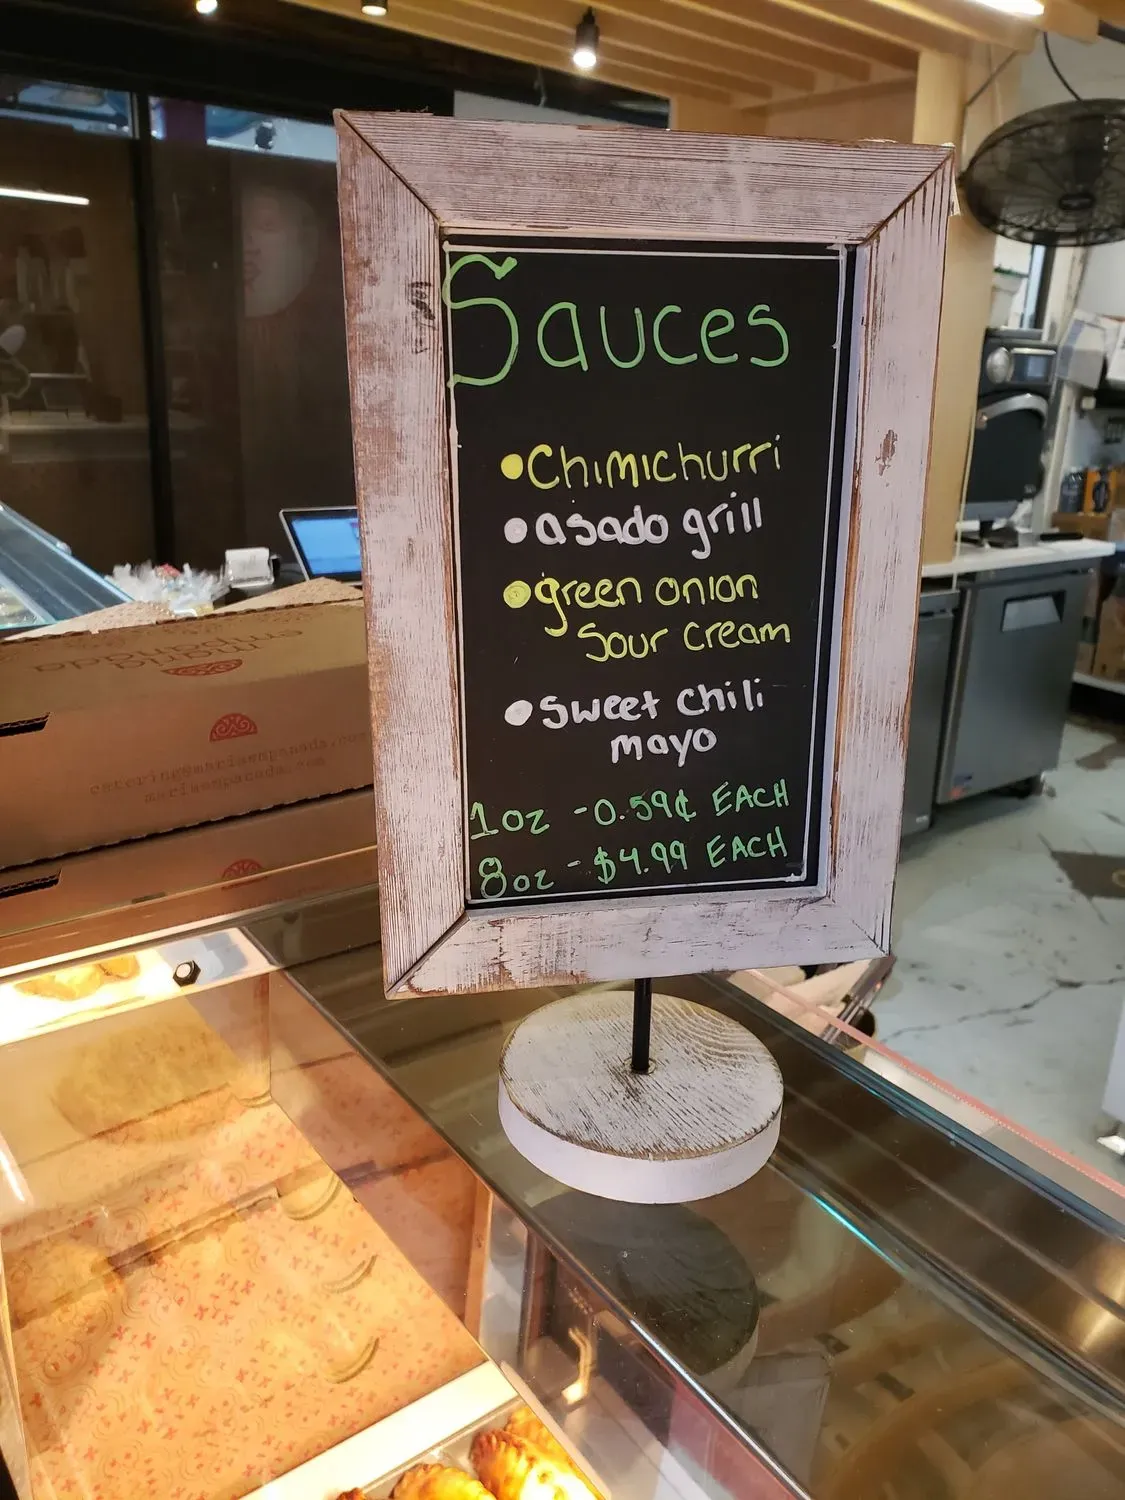 Sauces
•Chimichurri
•asado grill
•green onion
sour cream
•sweet chili
mayo
1oz -0.59¢ EACH
8oz - $4.99 EACH
maria
empanada
catering@mariaempanada.com
mariaempanada.com